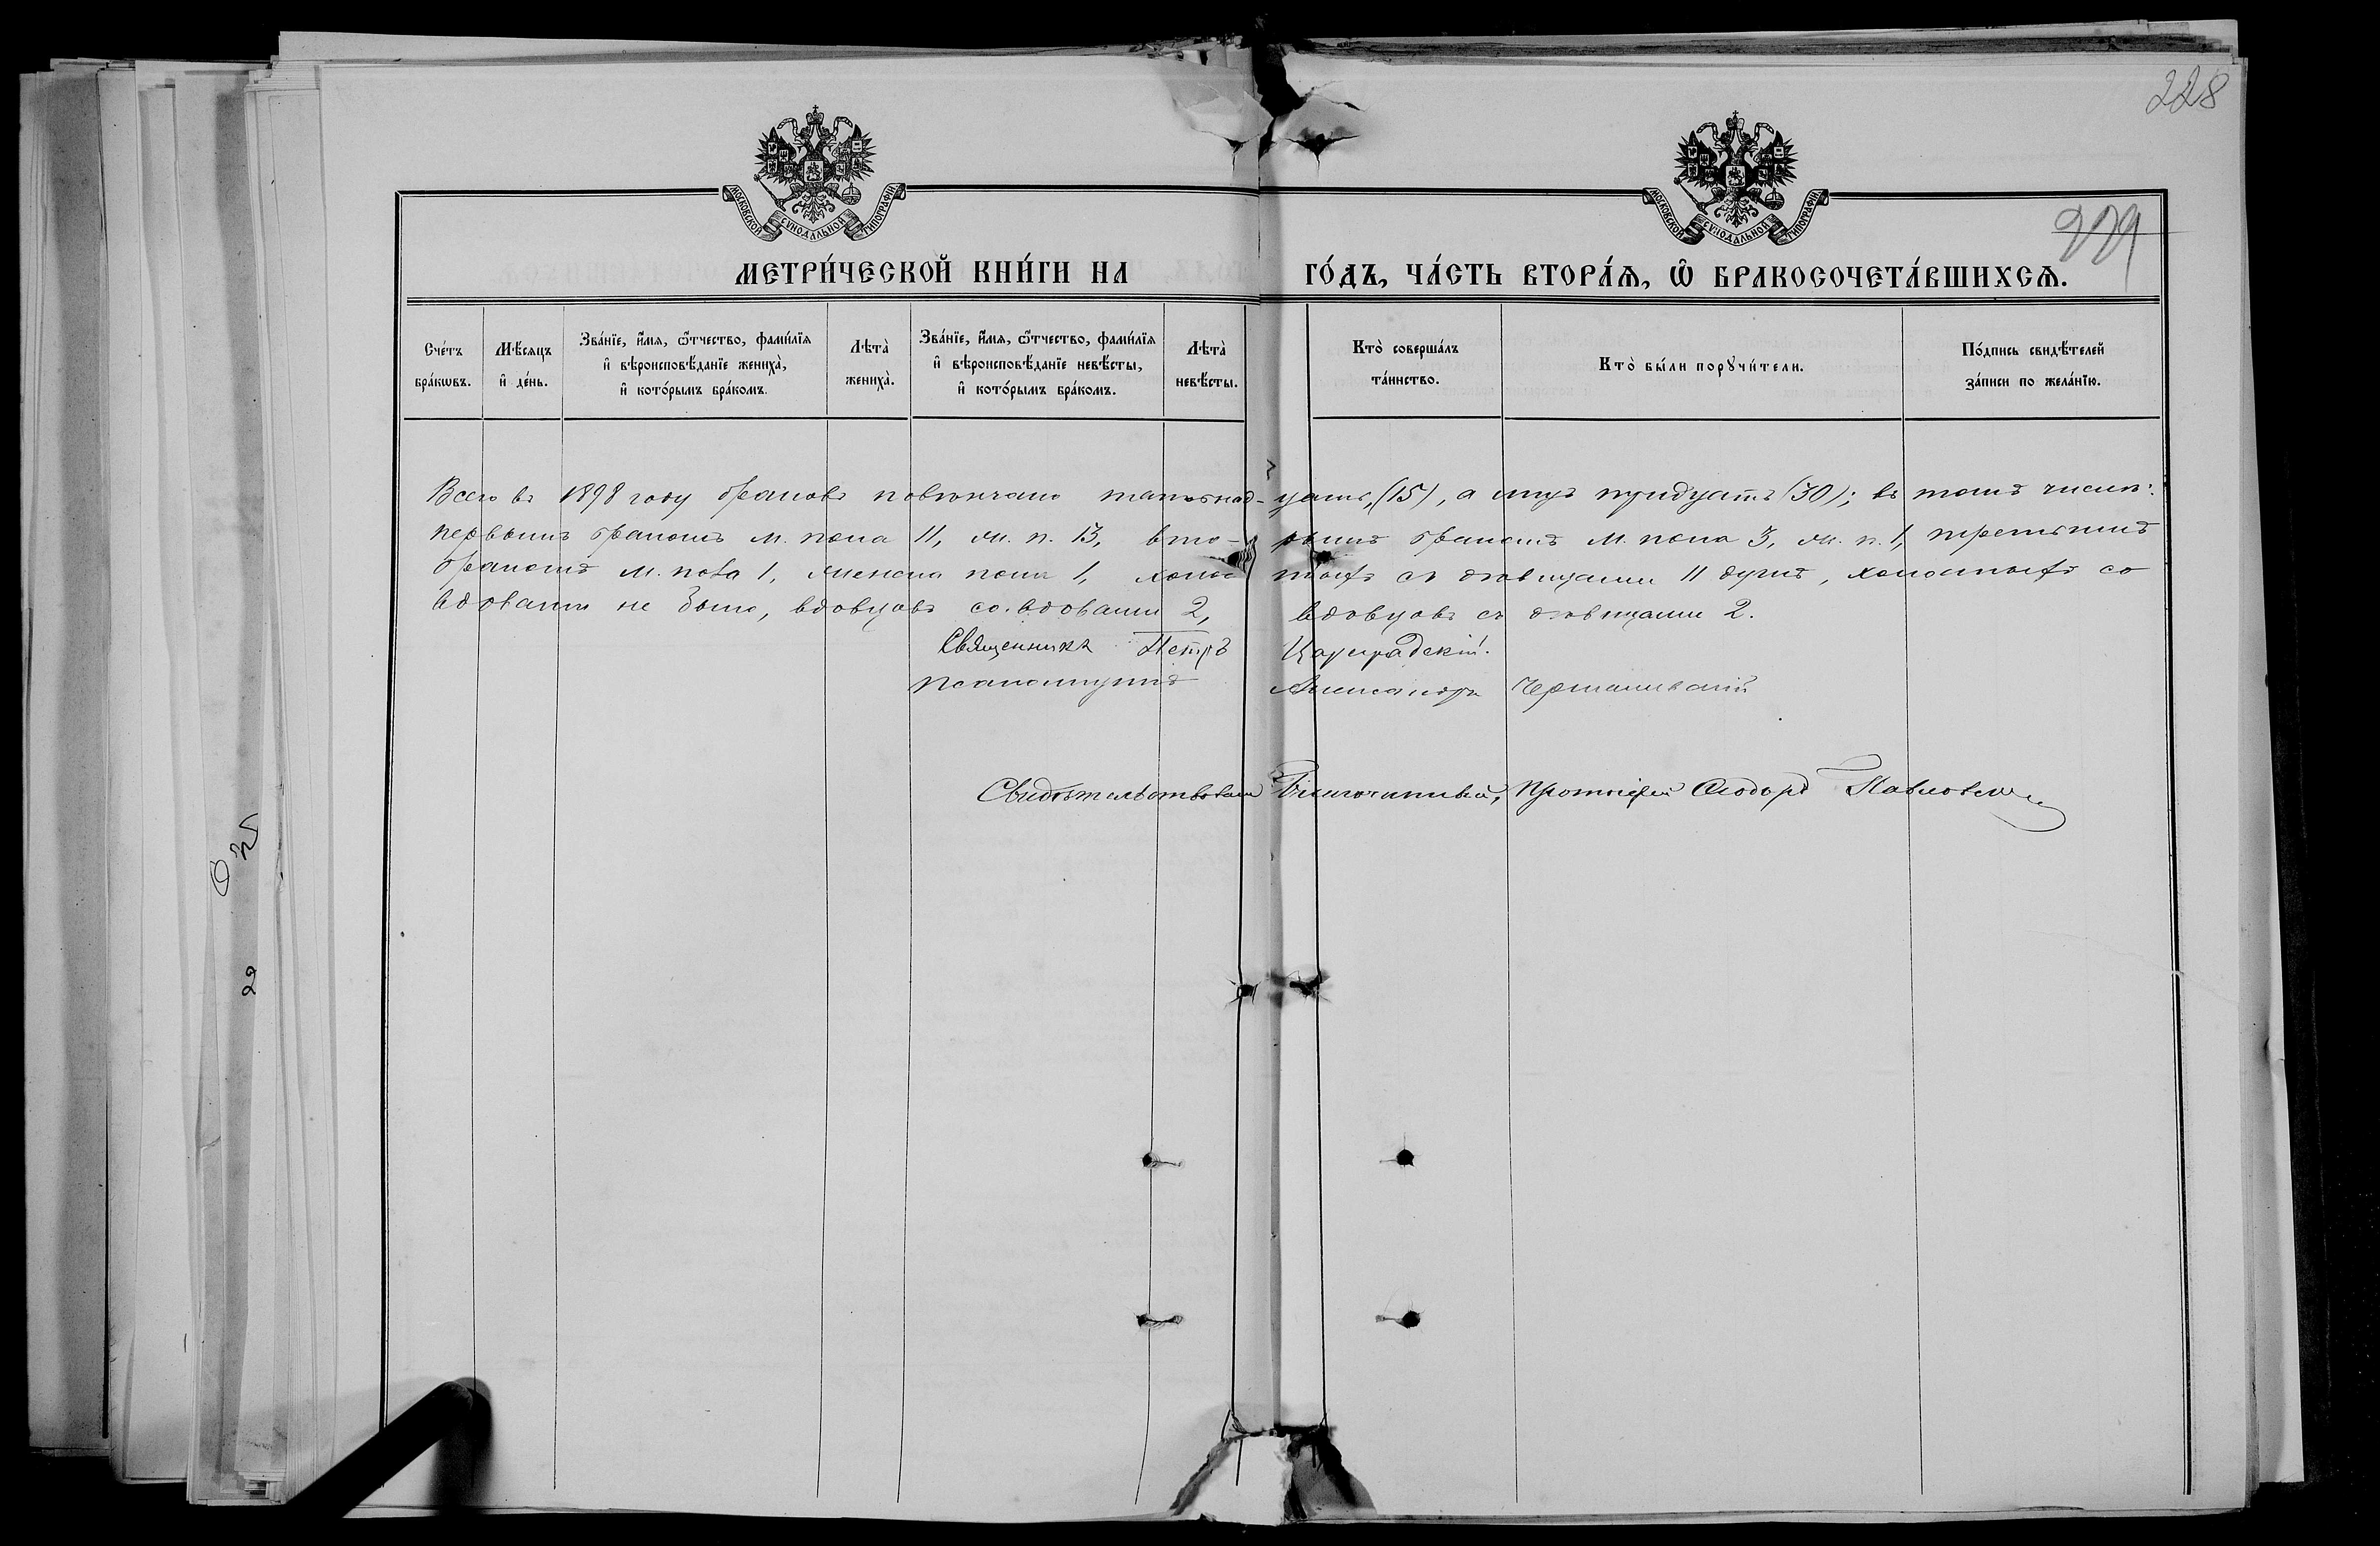 228
МОСКОВСКОЙ СУНОДАЛЬНОЙ ТИПОГРАФІИ
МОСКОВСКОЙ СУНОДАЛЬНОЙ ТИПОГРАФІИ
МЕТРИ́ЧЕСКОЙ КНИ́ГИ НА ГО́ДЪ, ЧА́СТЬ ВТОРА́Ѧ, Ѡ҆ БРАКОСОЧЕТА́ВШИХСѦ.
Сче́тъ бра́кѡвъ.
Мѣ́сѧцъ и҆ де́нь.
Зва́нїе, и҆́мѧ, ѻ҆́тчество, фами́лїѧ и҆ вѣроисповѣ́данїе женихà, и҆ кото́рымъ бра́комъ.
Лѣтà женихà.
Зва́нїе, и҆́мѧ, ѻ҆́тчество, фами́лїѧ и҆ вѣроисповѣ́данїе невѣ́сты, и҆ кото́рымъ бра́комъ.
Лѣтà невѣ́сты.
Ктò соверша́лъ та́инство.
Ктò бы́ли порꙋчи́тели.
По́дпись свидѣ́телей за́писи по жела́нїю.
Всего въ 1898 году браковъ повѣнчано пятьнад-цать, (15), а лицъ тридцать (30); въ томъ числѣ:
первымъ бракомъ м. пола 11, ж. п. 13, вто-рымъ бракомъ м. пола 3, ж. п. 1, третьимъ
бракомъ м. пола 1, женска пола 1, холос тыхъ съ дѣвицами 11 душъ, холостыхъ со
вдовами не было, вдовцовъ со вдовами 2, вдовцовъ съ дѣвицами 2.
Священникъ Петръ Цареградскій.
Псаломщикъ Александръ
Свидѣтельствовалъ Благочинный, Протоіерей Ѳеодоръ